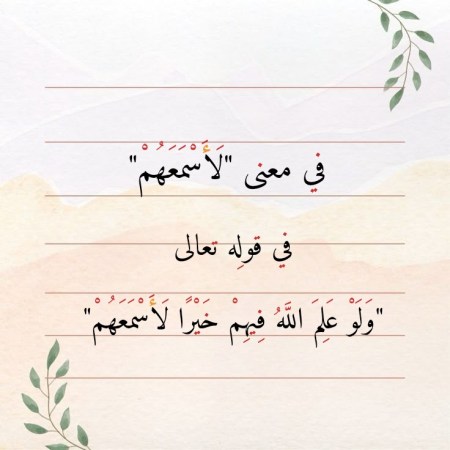 في معنى "لَأَسْمَعَهُمْ"
في قولِه تعالى
"وَلَوْ عَلِمَ اللَّهُ فِيهِمْ خَيْرًا لَأَسْمَعَهُمْ"